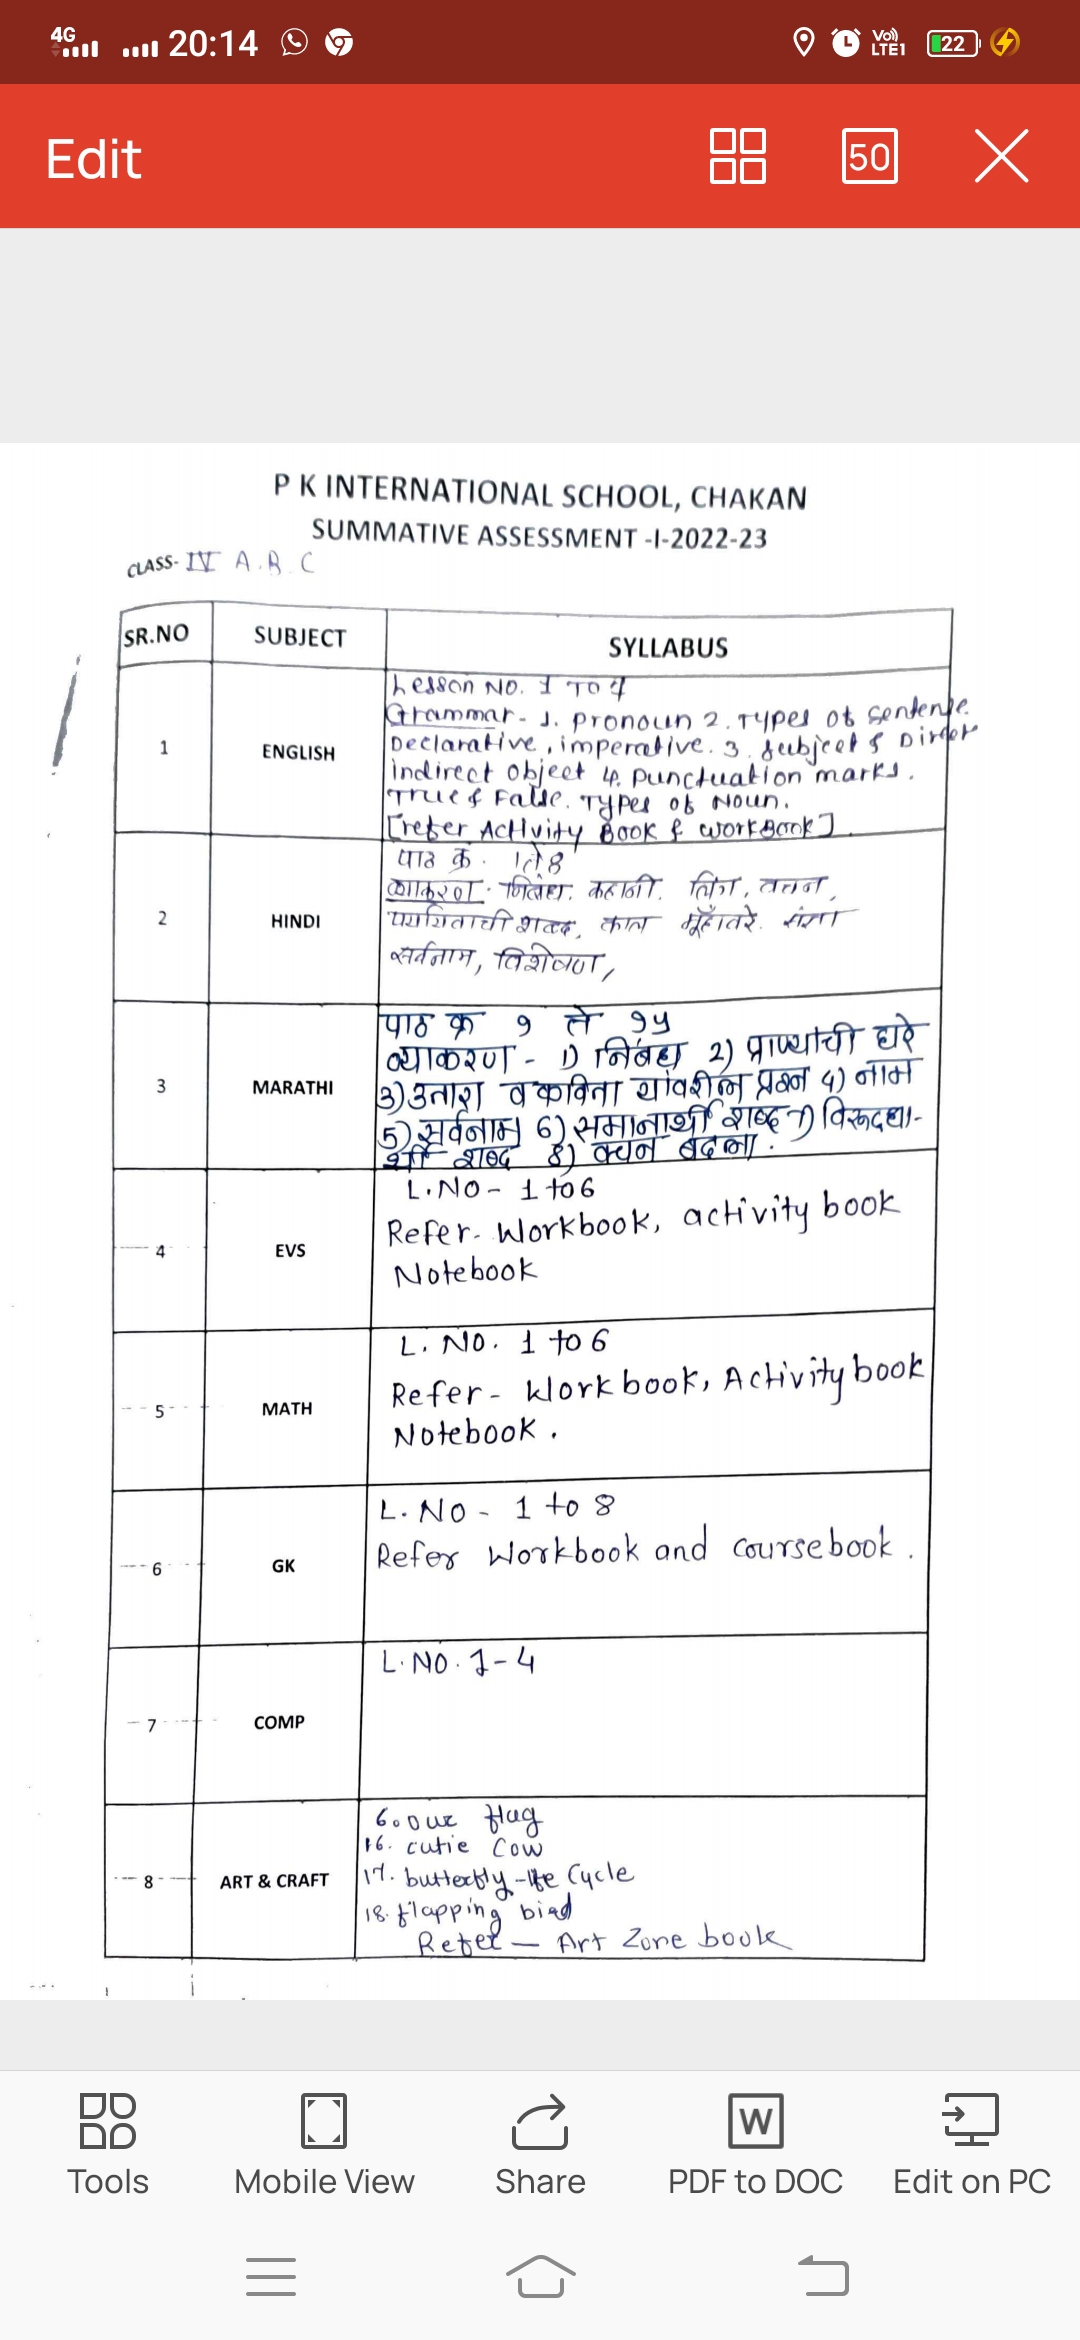 4G 20:14 Vo)) LTE1 22
Edit 50
P K INTERNATIONAL SCHOOL, CHAKAN
SUMMATIVE ASSESSMENT -I-2022-23
CLASS- IV A.B.C
SR.NO SUBJECT SYLLABUS
1 ENGLISH
Lesson NO. 1 TO 4
Grammar- 1. pronoun 2. Types of sentence.
Declarative, imperative. 3. subject & Direct
indirect object 4. punctuation marks.
True & False. Types of Noun.
[refer Activity Book & workBook]
2 HINDI
पाठ क्र. 1 ते 8
व्याकरण. निबंध. कहानी. लिंग, वचन,
पर्यायवाची शब्द, काल मूँहावरे. संज्ञा
सर्वनाम, विशेषण,
3 MARATHI
पाठ क्र १ ते १५
व्याकरण - 1) निबंध 2) प्राण्यांची घरे
3) उतारा व कविता यांवरील प्रश्न 4) नाम
5) सर्वनाम 6) समानार्थी शब्द 7) विरूदधा-
र्थी शब्द 8) वचन बदला.
4 EVS
L.NO- 1 to 6
Refer- Workbook, activity book
Notebook
5 MATH
L. NO. 1 to 6
Refer- Workbook, Activity book
Notebook.
6 GK
L. NO - 1 to 8
Refer Workbook and coursebook.
7 COMP
L.NO. 1-4
8 ART & CRAFT
6. our flag
16. cutie Cow
17. butterfly-life Cycle
18. flapping bird
Refer - Art Zone book
Tools Mobile View Share W PDF to DOC Edit on PC